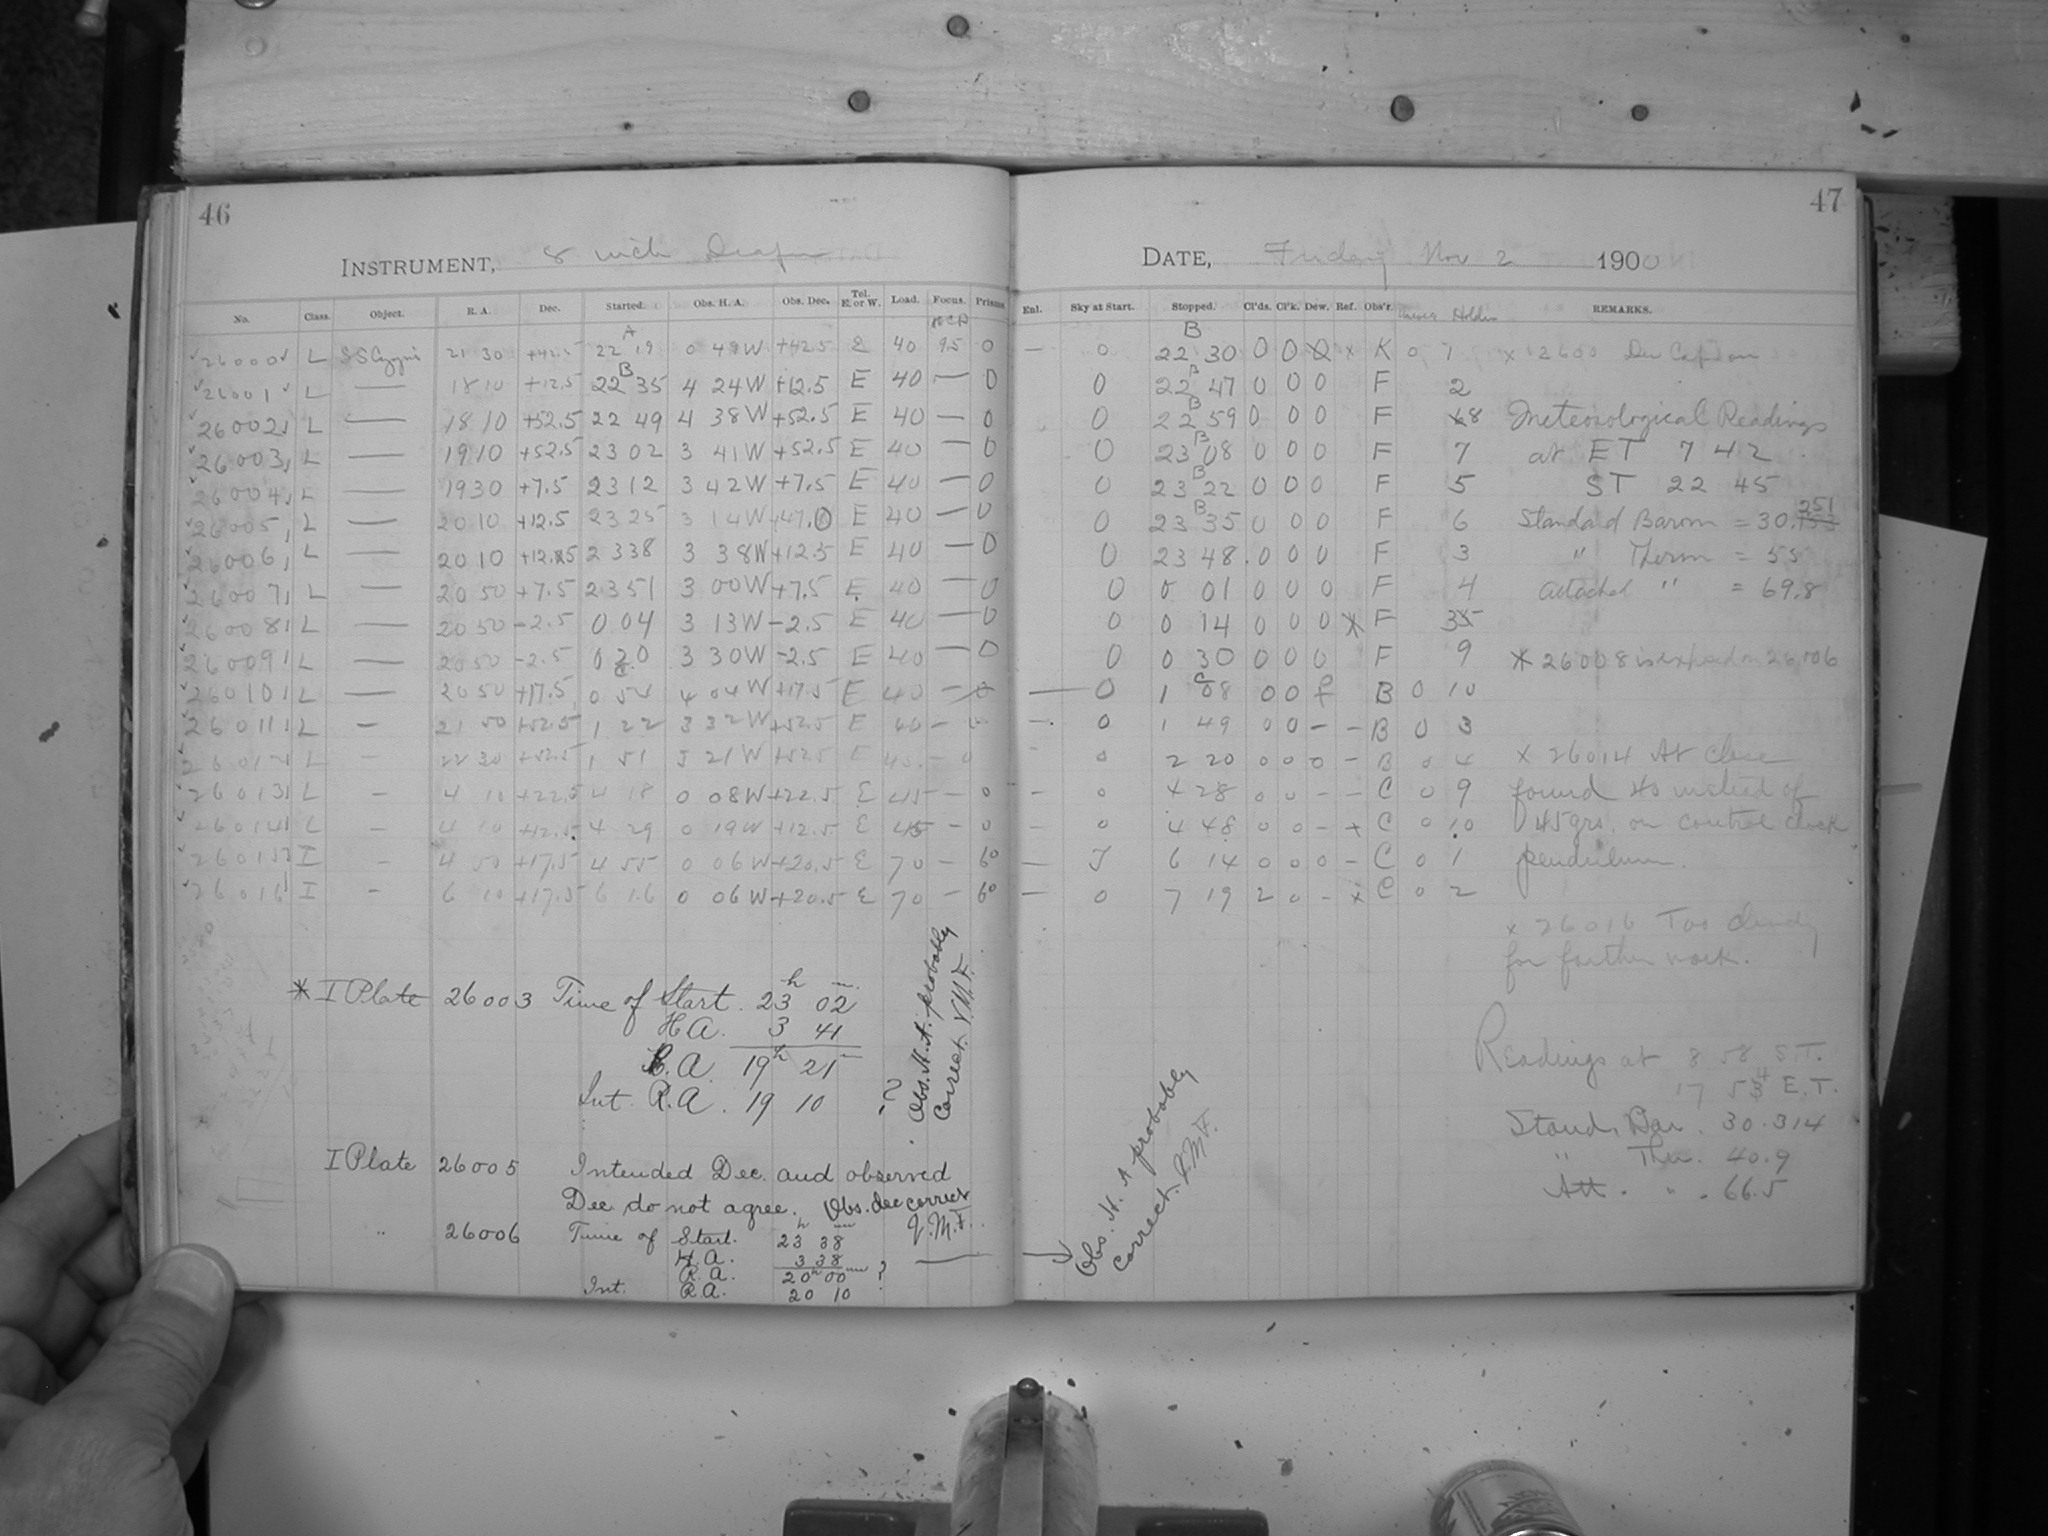 46
INSTRUMENT, 8 inch Draper
No. Class. Object. R. A. Dec. Started. Obs. H. A. Obs. Dec. Tel. E. or W. Load. Focus. Prisms.
26000 L SS Cygni 21 30 +42.5 22 19 0 49 W +42.5 E 40 9.5 0
26001 L — 18 10 +12.5 22 35 4 24 W +12.5 E 40 — 0
26002 L — 18 10 +52.5 22 49 4 38 W +52.5 E 40 — 0
26003 L — 19 10 +52.5 23 02 3 41 W +52.5 E 40 — 0
26004 L — 19 30 +7.5 23 12 3 42 W +7.5 E 40 — 0
26005 L — 20 10 +12.5 23 25 3 14 W +47.0 E 40 — 0
26006 L — 20 10 +12.5 23 38 3 38 W +12.5 E 40 — 0
26007 L — 20 50 +7.5 23 51 3 00 W +7.5 E 40 — 0
26008 L — 20 50 -2.5 0 04 3 13 W -2.5 E 40 — 0
26009 L — 20 50 -2.5 0 20 3 30 W -2.5 E 40 — 0
26010 L — 20 50 +17.5 0 54 4 04 W +17.5 E 40 — 0
26011 L — 21 50 +52.5 1 22 3 32 W +52.5 E 40 —
26012 L — 22 30 +52.5 1 51 3 21 W +52.5 E 40 — 0
26013 L — 4 10 +22.5 4 18 0 08 W +22.5 E 45 — 0
26014 L — 4 10 +12.5 4 29 0 19 W +12.5 E 45 — 0
26015 I — 4 50 +17.5 4 55 0 06 W +20.5 E 70 — 60
26016 I — 6 10 +17.5 6 16 0 06 W +20.5 E 70 — 60
* I Plate 26003 Time of Start. 23h 02m
H.A. 3 41
R.A. 19h 21
Int. R.A. 19 10 ?
Obs. H. A. probably
correct. J.M.F.
I Plate 26005 Intended Dec. and observed
Dec. do not agree. Obs. dec correct
J.M.F.
" 26006 Time of Start. 23h 38m
H.A. 3 38
R.A. 20h 00m ?
Int. R.A. 20 10
47
DATE, Friday Nov 2 1900
Enl. Sky at Start. Stopped. Cl'ds. Cl'k. Dew. Ref. Obs'r. Holder REMARKS.
— 0 B 22 30 0 0 0 x K 0 1 x 2600 Dew Cap on
0 B 22 47 0 0 0 F 2
0 B 22 59 0 0 0 F 8 Meteorological Readings
0 B 23 08 0 0 0 F 7 at ET 7 42
0 B 23 22 0 0 0 F 5 ST 22 45
0 B 23 35 0 0 0 F 6 Standard Barom = 30.251
0 23 48 0 0 0 F 3 " Therm = 55
0 0 01 0 0 0 F 4 attached " = 69.8
0 0 14 0 0 0 * F 3
0 0 30 0 0 0 F 9 * 26008 is exposed on 26006
— 0 1 08 0 0 f B 0 10
— 0 1 49 0 0 – – B 0 3
– 0 2 20 0 0 0 – B 0 4 x 26014 At close
— 0 4 28 0 0 – – C 0 9 found 40 instead of
— 0 4 48 0 0 – x C 0 10 45 grs. on control clock
— 5 6 14 0 0 0 – C 0 1 pendulum.
— 0 7 19 2 0 – x C 0 2
x 26016 Too cloudy
for further work.
Readings at 8 58 S.T.
17 54 E.T.
Stand. Bar. 30.314
" Ther. 40.9
Att. " . 66.5
Obs. H. A probably
correct. J.M.F.